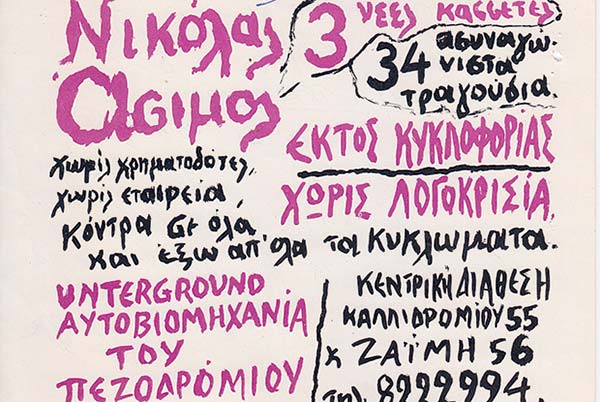 Νικόλας
Άσιμος
3 νέες κασσέτες
34 ασυναγώ-
νιστα
τραγούδια.
ΕΚΤΟΣ ΚΥΚΛΟΦΟΡΙΑΣ
ΧΩΡΙΣ ΛΟΓΟΚΡΙΣΙΑ,
χωρίς χρηματοδότες,
χωρίς εταιρεία,
κόντρα σε όλα
και έξω απ' όλα τα κυκλώματα.
UNTERGROUND
ΑΥΤΟΒΙΟΜΗΧΑΝΙΑ
ΤΟΥ
ΠΕΖΟΔΡΟΜΙΟΥ
ΚΕΝΤΡΙΚΗ ΔΙΑΘΕΣΗ
ΚΑΛΛΙΔΡΟΜΙΟΥ 55
κ ΖΑΪΜΗ 56
τηλ. 8222994.